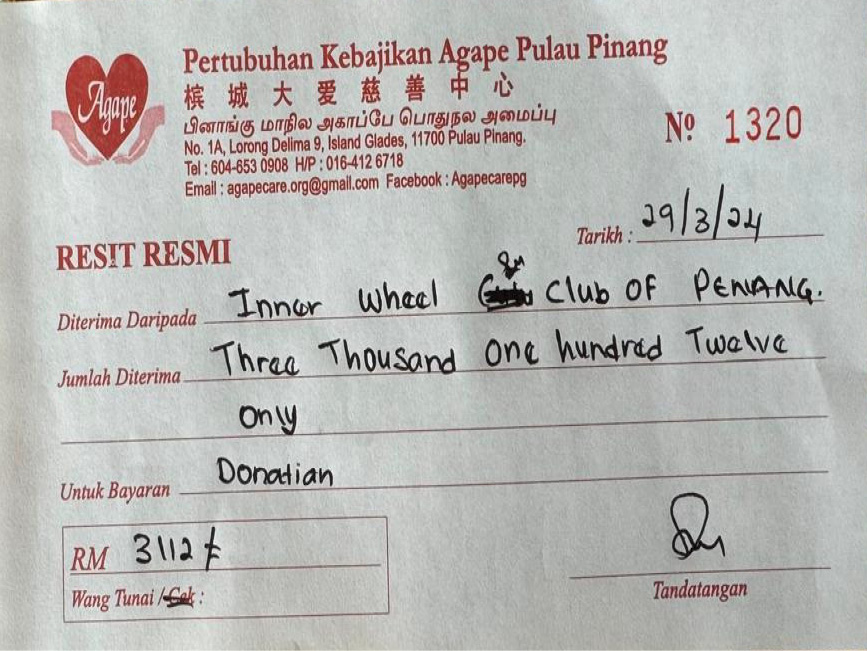 Agape
Pertubuhan Kebajikan Agape Pulau Pinang
槟城大爱慈善中心
பினாங்கு மாநில அகாப்பே பொதுநல அமைப்பு
No. 1A, Lorong Delima 9, Island Glades, 11700 Pulau Pinang.
Tel : 604-653 0908 H/P : 016-412 6718
Email : agapecare.org@gmail.com Facebook : Agapecarepg
Nº 1320
Tarikh : 29/3/24
RESIT RESMI
Diterima Daripada Inner Wheel Club OF PENANG.
Jumlah Diterima Three Thousand One hundred Twelve
Only
Untuk Bayaran Donatian
RM 3112
Wang Tunai / Cek :
Tandatangan